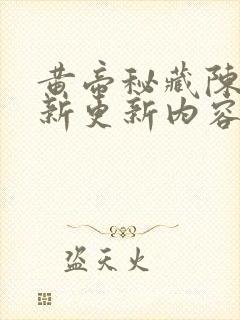 黄帝秘藏陈
新更新内容
盗天火